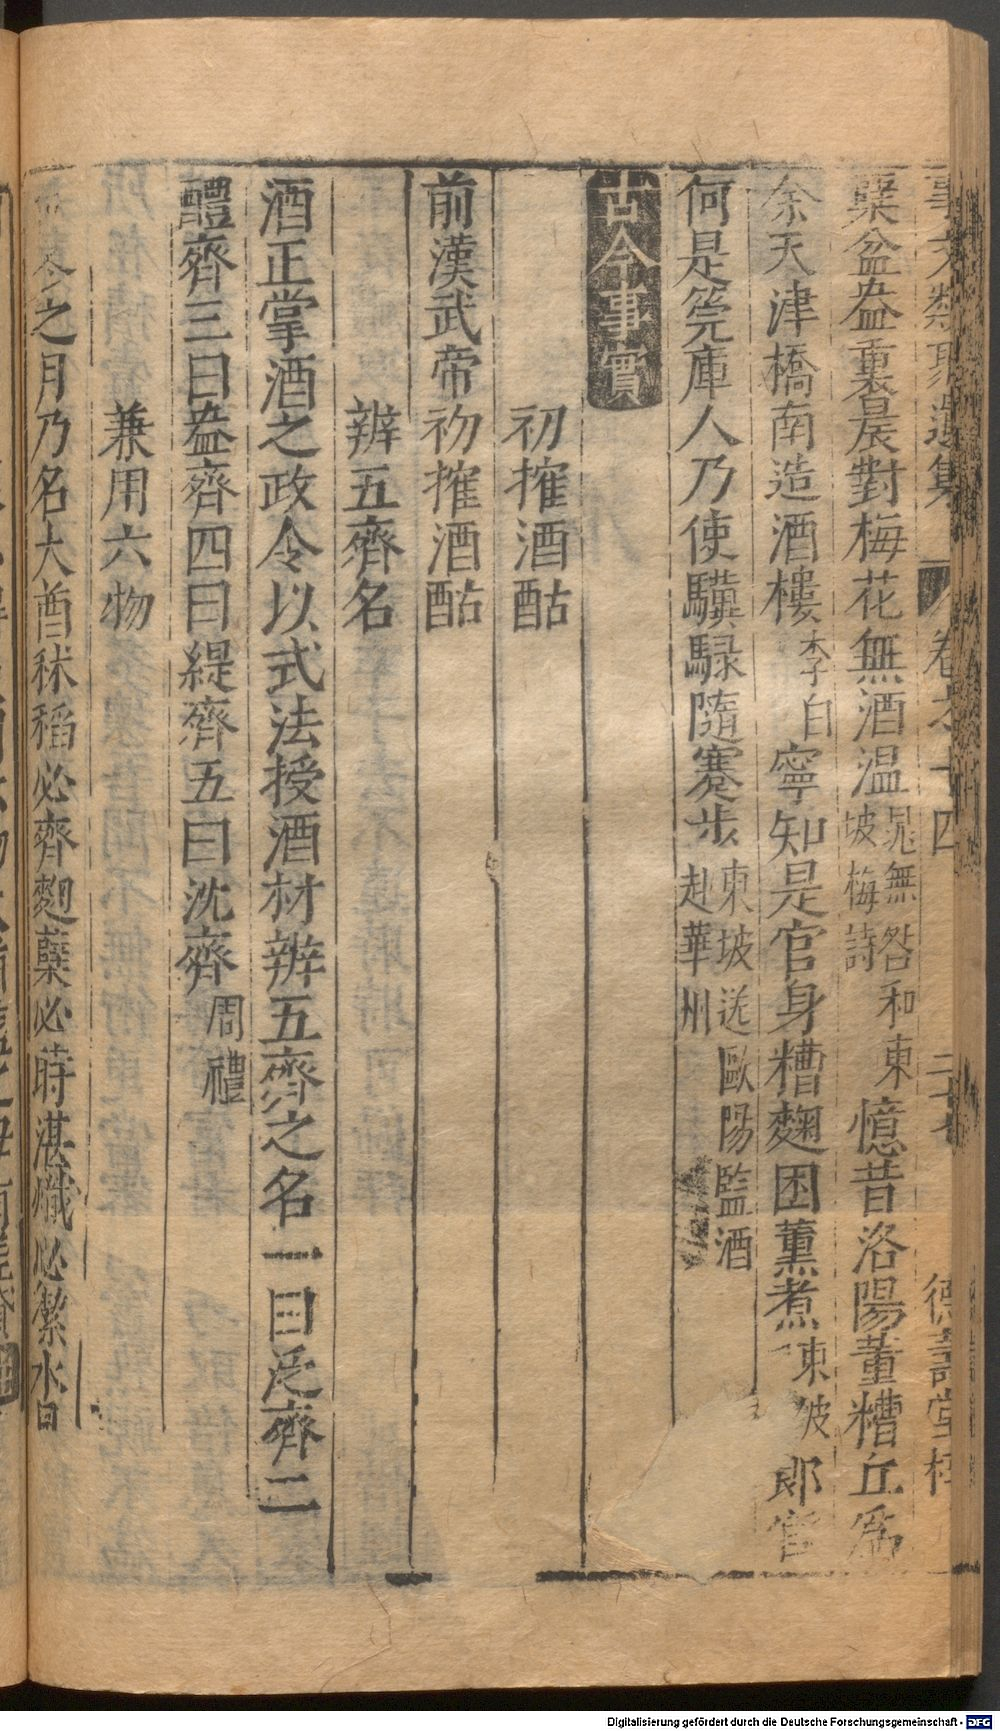 事文類聚遺集 卷之十四 二十七 德壽堂梓
粟盆盎裏晨對梅花無酒温 晁無咎和東坡梅詩 憶昔洛陽董糟丘爲
余天津橋南造酒樓 李白 寧知是官身糟麴困薰煮 東坡 郎官
何是筦庫人乃使驥騄隨蹇步 東坡送歐陽監酒赴華州
古今事實
初搉酒酤
前漢武帝初搉酒酤
辨五齊名
酒正掌酒之政令以式法授酒材辨五齊之名一曰泛齊二
醴齊三曰盎齊四曰緹齊五曰沈齊 周禮
兼用六物
冬之月乃名大酋秫稻必齊麴蘖必時湛熾必潔水
Digitalisierung gefördert durch die Deutsche Forschungsgemeinschaft - DFG